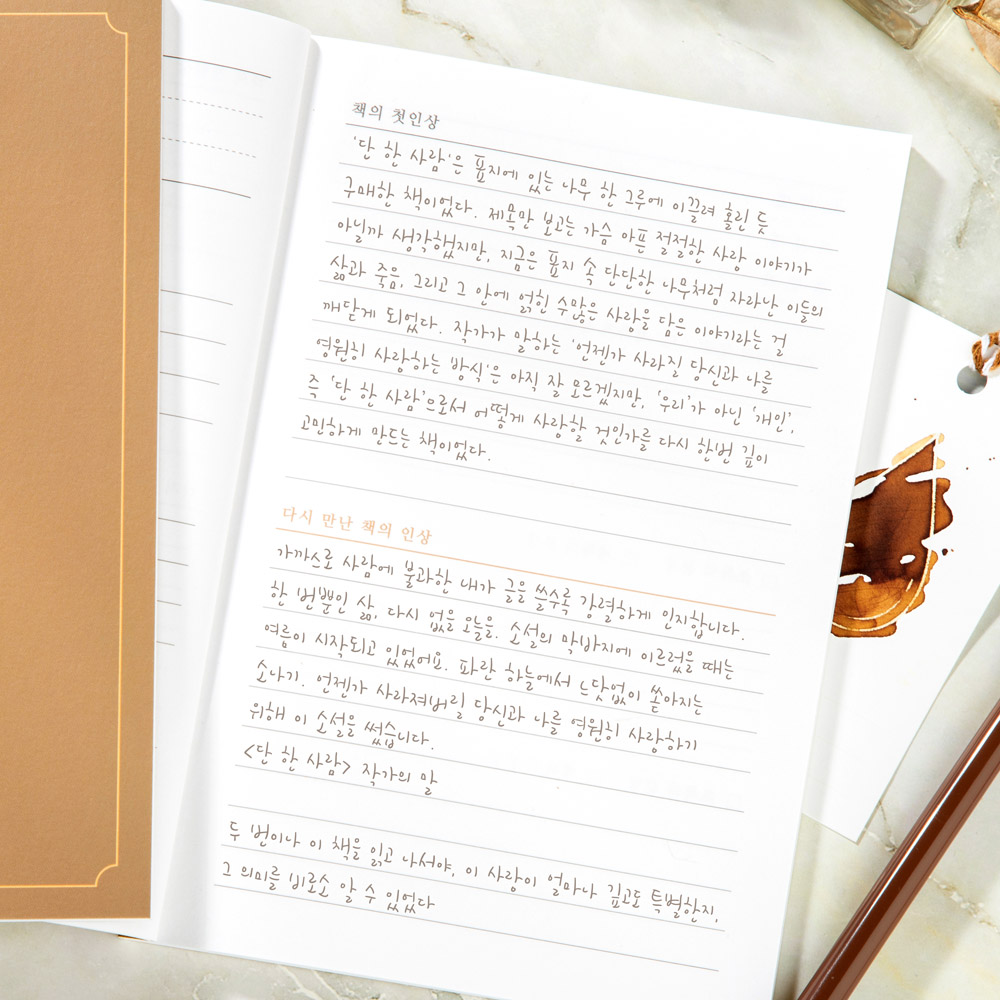 책의 첫인상
'단 한 사람'은 표지에 있는 나무 한 그루에 이끌려 홀린 듯
구매한 책이었다. 제목만 보고는 가슴 아픈 절절한 사랑 이야기가
아닐까 생각했지만, 지금은 표지 속 단단한 나무처럼 자라난 이들의
삶과 죽음, 그리고 그 안에 얽힌 수많은 사랑을 담은 이야기라는 걸
깨닫게 되었다. 작가가 말하는 '언젠가 사라질 당신과 나를
영원히 사랑하는 방식'은 아직 잘 모르겠지만, '우리'가 아닌 '개인',
즉 '단 한 사람'으로서 어떻게 사랑할 것인가를 다시 한번 깊이
고민하게 만드는 책이었다.
다시 만난 책의 인상
가까스로 사람에 불과한 내가 글을 쓸수록 강렬하게 인지합니다.
한 번뿐인 삶, 다시 없을 오늘을. 소설의 막바지에 이르렀을 때는
여름이 시작되고 있었어요. 파란 하늘에서 느닷없이 쏟아지는
소나기. 언젠가 사라져버릴 당신과 나를 영원히 사랑하기
위해 이 소설을 썼습니다.
<단 한 사람> 작가의 말
두 번이나 이 책을 읽고 나서야, 이 사랑이 얼마나 깊고도 특별한지,
그 의미를 비로소 알 수 있었다